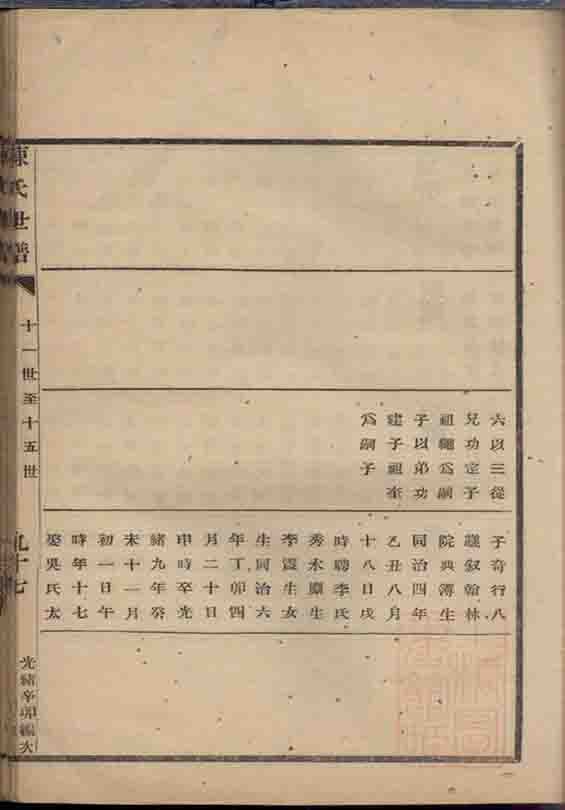 六以三從
兄功定子
祖繩為嗣
子以弟功
建子祖奎
為嗣子
子奇行八
議叙翰林
院典簿生
同治四年
乙丑八月
十八日戌
時聘李氏
秀水廩生
李震生女
生同治六
年丁卯四
月二十日
申時卒光
緒九年癸
未十一月
初一日午
時年十七
娶吳氏太
陳氏世譜
十一世至十五世
九十七
光緒辛卯編次